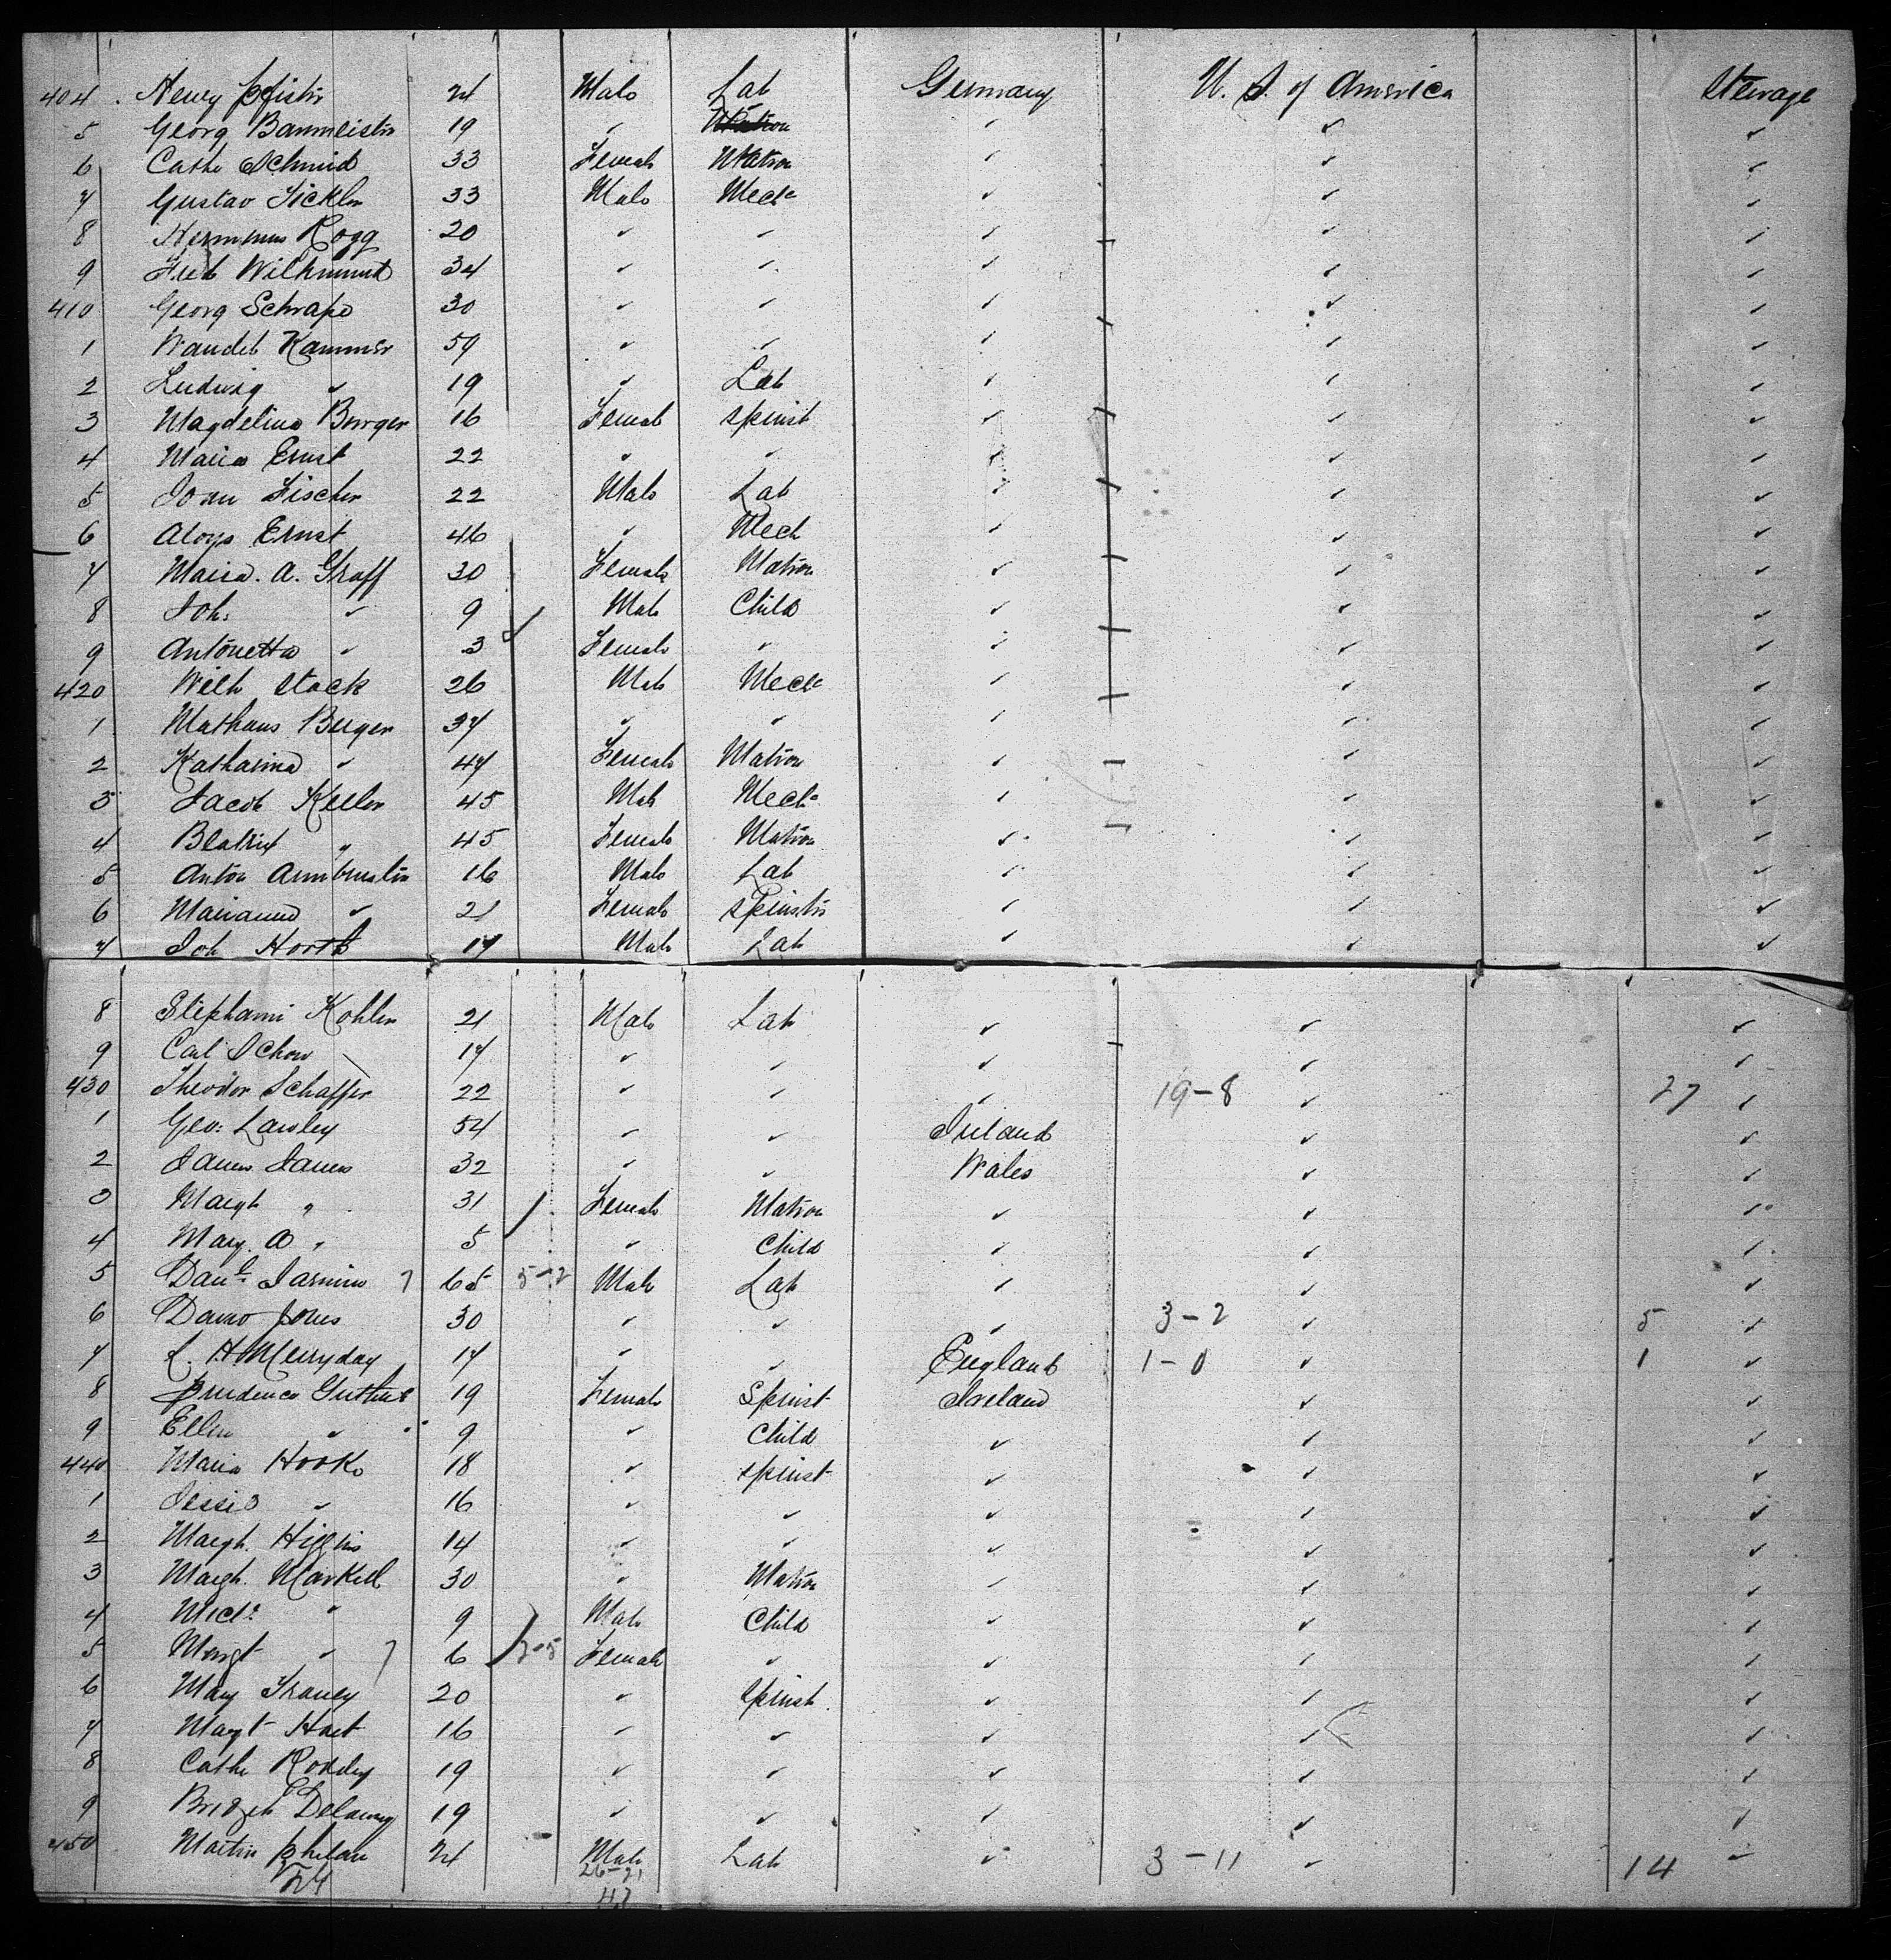 404 . Henry Pfister 21 Male Lab Germany U. S. of America Steerage
5 Georg Baumeister 19 ✓ ✓ ✓ ✓
6 Cathe Schmid 33 Female Matron ✓ ✓ ✓
7 Gustav Sickler 33 Male Mech ✓ ✓ ✓
8 Rogg 20 ✓ ✓ ✓ ✓ ✓
9 34 ✓ ✓ ✓ ✓ ✓
410 Georg Schrape 30 ✓ ✓ ✓ ✓ ✓
1 Kammer 59 ✓ ✓ ✓ ✓ ✓
2 Ludwig ✓ 19 ✓ Lab ✓ ✓ ✓
3 Magdelina Burger 16 Female Spinst ✓ ✓ ✓
4 Maria Ernst 22 ✓ ✓ ✓ ✓ ✓
5 Fischer 22 Male Lab ✓ ✓ ✓
6 Aloys Ernst 46 ✓ Mech ✓ ✓ ✓
7 Maria. A. Graff 30 Female Matron ✓ ✓ ✓
8 Joh: ✓ 9 Male Child ✓ ✓ ✓
9 Antonetta ✓ 3 Female ✓ ✓ ✓ ✓
420 Wilh Stock 26 Male Mech ✓ ✓ ✓
1 Mathaus Berger 37 ✓ ✓ ✓ ✓ ✓
2 Katharina ✓ 47 Female Matron ✓ ✓ ✓
3 Jacob Keller 45 Male Mech ✓ ✓ ✓
4 Beatrix " 45 Female Matron ✓ ✓ ✓
5 Anton Armbruster 16 Male Lab ✓ ✓ ✓
6 Marianna ✓ 21 Female Spinster ✓ ✓ ✓
7 Joh 17 Male Lab ✓ ✓ ✓
8 Stephann Kohler 21 Male Lab ✓ ✓ ✓
9 Carl Schow 17 ✓ ✓ ✓ ✓ ✓
430 Theodor Schaffer 22 ✓ ✓ ✓ 19-8 ✓ 27 ✓
1 Geo: Lawley 54 ✓ ✓ Ireland ✓ ✓
2 James James 32 ✓ ✓ Wales ✓ ✓
3 Margt " 31 Female Matron ✓ ✓ ✓
4 Mary. A " 5 ✓ Child ✓ ✓ ✓
5 Danl 65 5-2 Male Lab ✓ ✓ ✓
6 Jones 30 ✓ ✓ ✓ 3-2 ✓ 5 ✓
7 L. H Merryday 17 ✓ ✓ England 1-0 ✓ 1 ✓
8 Prudence 19 Female Spinst Ireland ✓ ✓
9 Ellen ✓ 9 ✓ Child ✓ ✓ ✓
440 Maria Hooke 18 ✓ Spinst ✓ ✓ ✓
1 Jessie ✓ 16 ✓ ✓ ✓ ✓ ✓
2 Margt. Higgins 14 ✓ ✓ ✓ ✓ ✓
3 Margt. Markell 30 ✓ Matron ✓ ✓ ✓
4 Michl " 9 Male Child ✓ ✓ ✓
5 Margt ✓ 6 7-5 Female ✓ ✓ ✓ ✓
6 Mary 20 ✓ Spinst ✓ ✓ ✓
7 Margt Hart 16 ✓ ✓ ✓ ✓ ✓
8 Cathe Roddy 19 ✓ ✓ ✓ ✓ ✓
9 Bridget Delaney 19 ✓ ✓ ✓ ✓ ✓
450 Martin Phelan 21 Male Lab ✓ 3-11 ✓ 14 ✓
26-21
47